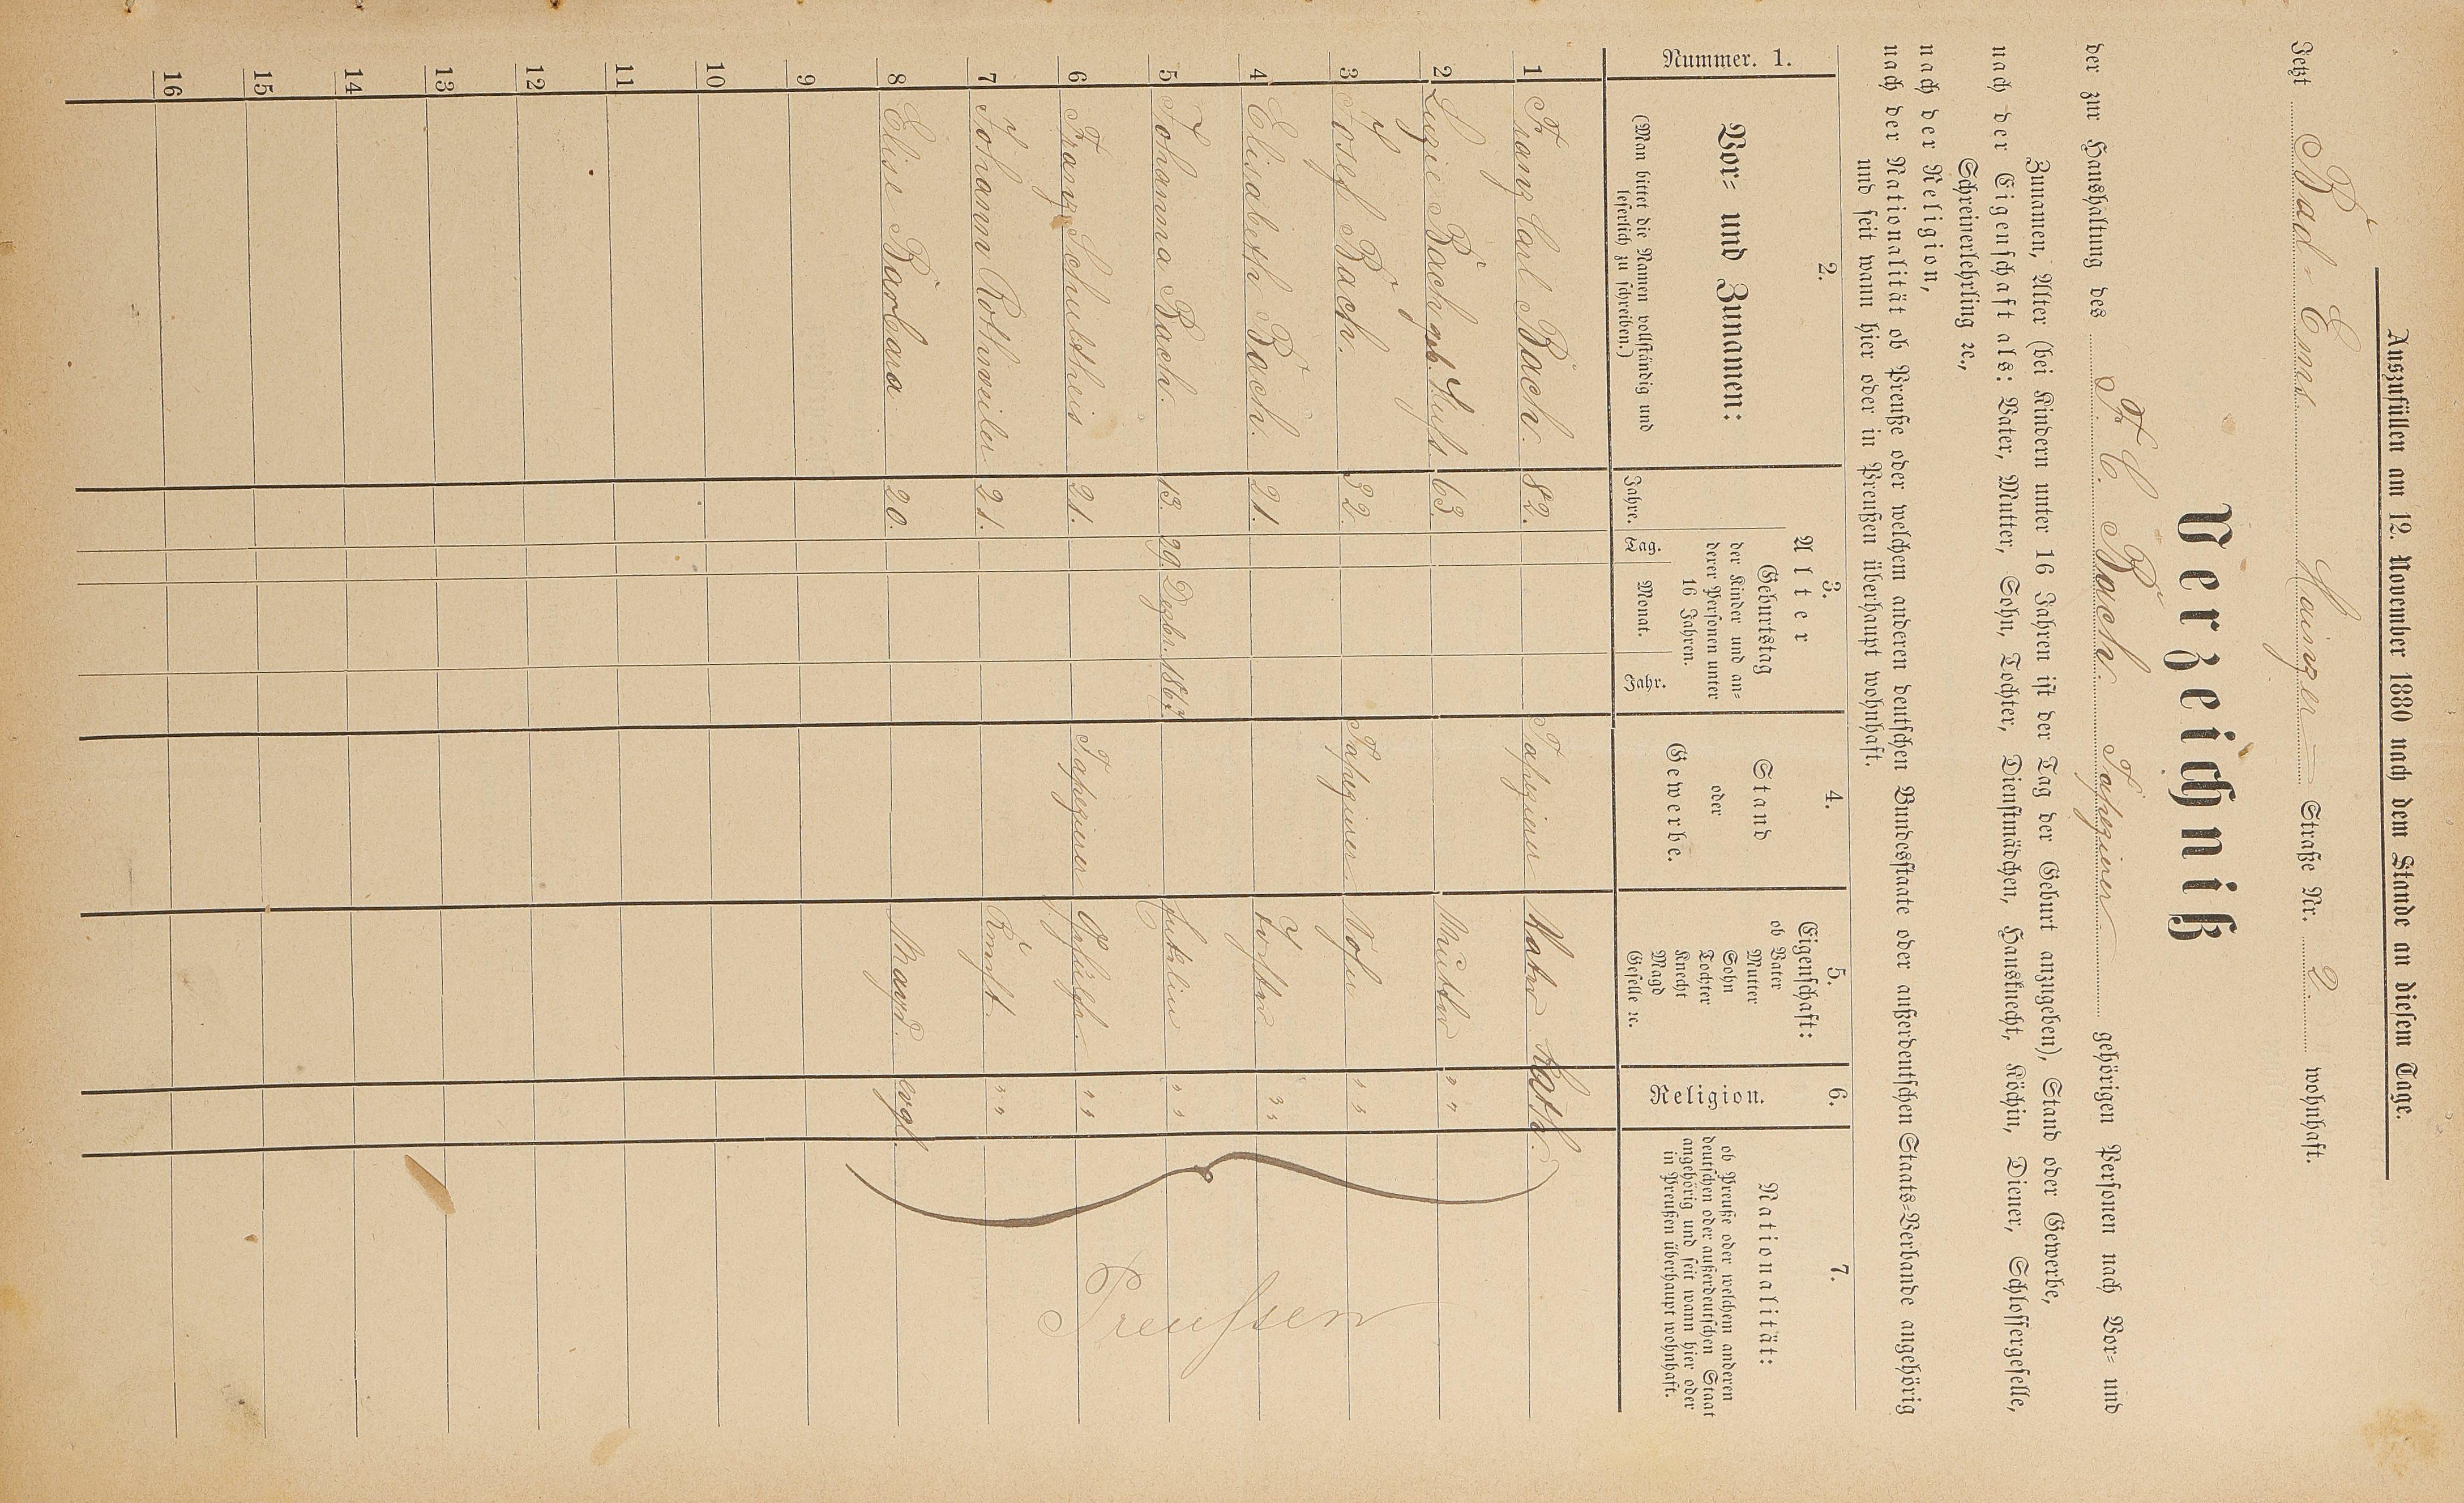 Auszufüllen am 12. November 1880 nach dem Stande an diesem Tage.
Jetzt Bad-Ems Mainzer= Straße Nr. 2. wohnhaft.
Verzeichniß
der zur Haushaltung des F. C. Bach. Tapezirer gehörigen Personen nach Vor= und
Zunamen, Alter (bei Kindern unter 16 Jahren ist der Tag der Geburt anzugeben), Stand oder Gewerbe,
nach der Eigenschaft als: Vater, Mutter, Sohn, Tochter, Dienstmädchen, Hausknecht, Köchin, Diener, Schlossergeselle,
Schreinerlehrling ꝛc.,
nach der Religion,
nach der Nationalität ob Preuße oder welchem anderen deutschen Bundesstaate oder außerdeutschen Staats=Verbande angehörig
und seit wann hier oder in Preußen überhaupt wohnhaft.
Nummer. 1.
2.
Vor= und Zunamen:
(Man bittet die Namen vollständig und
leserlich zu schreiben.)
3.
Alter
Jahre.
Geburtstag
der Kinder und an=
derer Personen unter
16 Jahren.
Tag. Monat. Jahr.
4.
Stand
oder
Gewerbe.
5.
Eigenschaft:
ob Vater
Mutter
Sohn
Tochter
Knecht
Magd
Geselle ꝛc.
6.
Religion.
7.
Nationalität:
ob Preuße oder welchem anderen
deutschen oder außerdeutschen Staat
angehörig und seit wann hier oder
in Preußen überhaupt wohnhaft.
1 Franz Carl Bach. 82. Tapezirer Vater Kath.
2 Luzie Bach geb. 63. Mutter " "
3 Josef Bach. 32. Tapezirer Sohn " "
4 Elisabeth Bach. 21. Tochter " "
5 Johanna Bach. 13. 29. Dezbr. 1867. Enkelin " "
6 Franz Schultheis 21. Tapezirer Gehülfe. " "
7 Johann Rothweiler 21. Knecht. " "
8 Elise Barbara 20. Magd. evgl.
Preußen
9
10
11
12
13
14
15
16